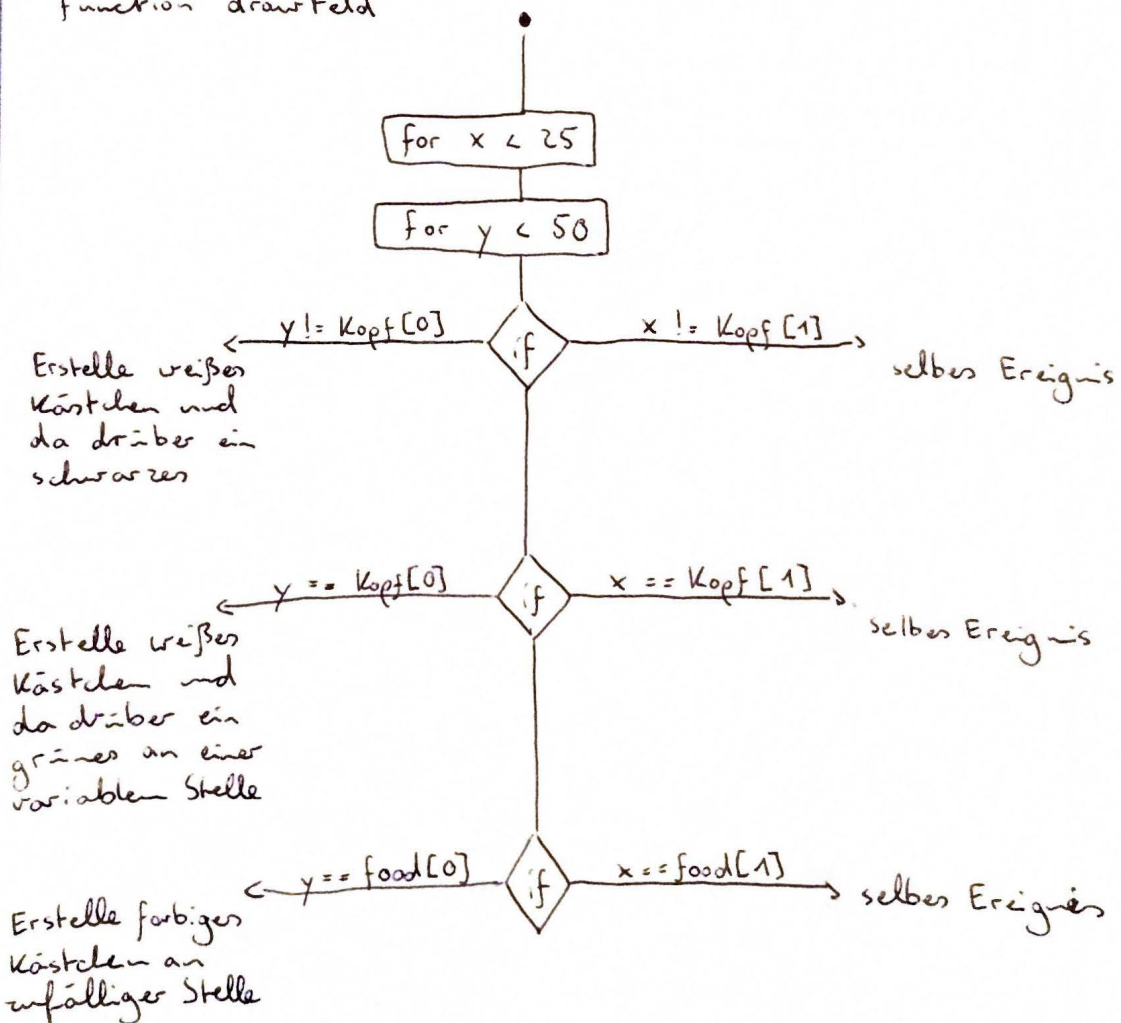 function drawFeld
for x < 25
for y < 50
if
y != Kopf[0]
x != Kopf[1]
Erstelle weißes
Kästchen und
da drüber ein
schwarzes
selbes Ereignis
if
y == Kopf[0]
x == Kopf[1]
Erstelle weißes
Kästchen und
da drüber ein
grünes an einer
variablen Stelle
selbes Ereignis
if
y == food[0]
x == food[1]
Erstelle farbiges
Kästchen an
zufälliger Stelle
selbes Ereignis